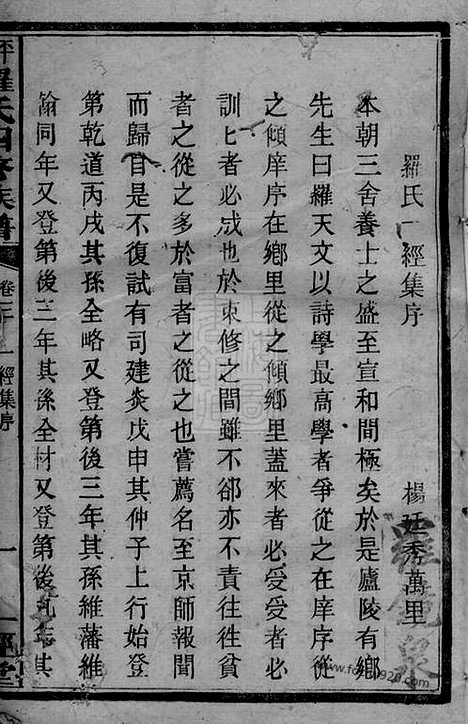 羅氏一經集序
楊廷秀萬里
本朝三舍養士之盛至宣和間極矣於是廬陵有鄉
先生曰羅天文以詩學最高學者爭從之在庠序從
之傾庠序在鄉里從之傾鄉里蓋來者必受受者必
訓匕者必成也於束修之間雖不卻亦不責往徃貧
者之從之多於富者之從之也嘗薦名至京師報聞
而歸自是不復試有司建炎戊申其仲子上行始登
第乾道丙戌其孫全略又登第後三年其孫維藩維
翰同年又登第後三年其孫全材又登第後九年其
羅氏四修族譜
卷二
一經集序
一
一經堂